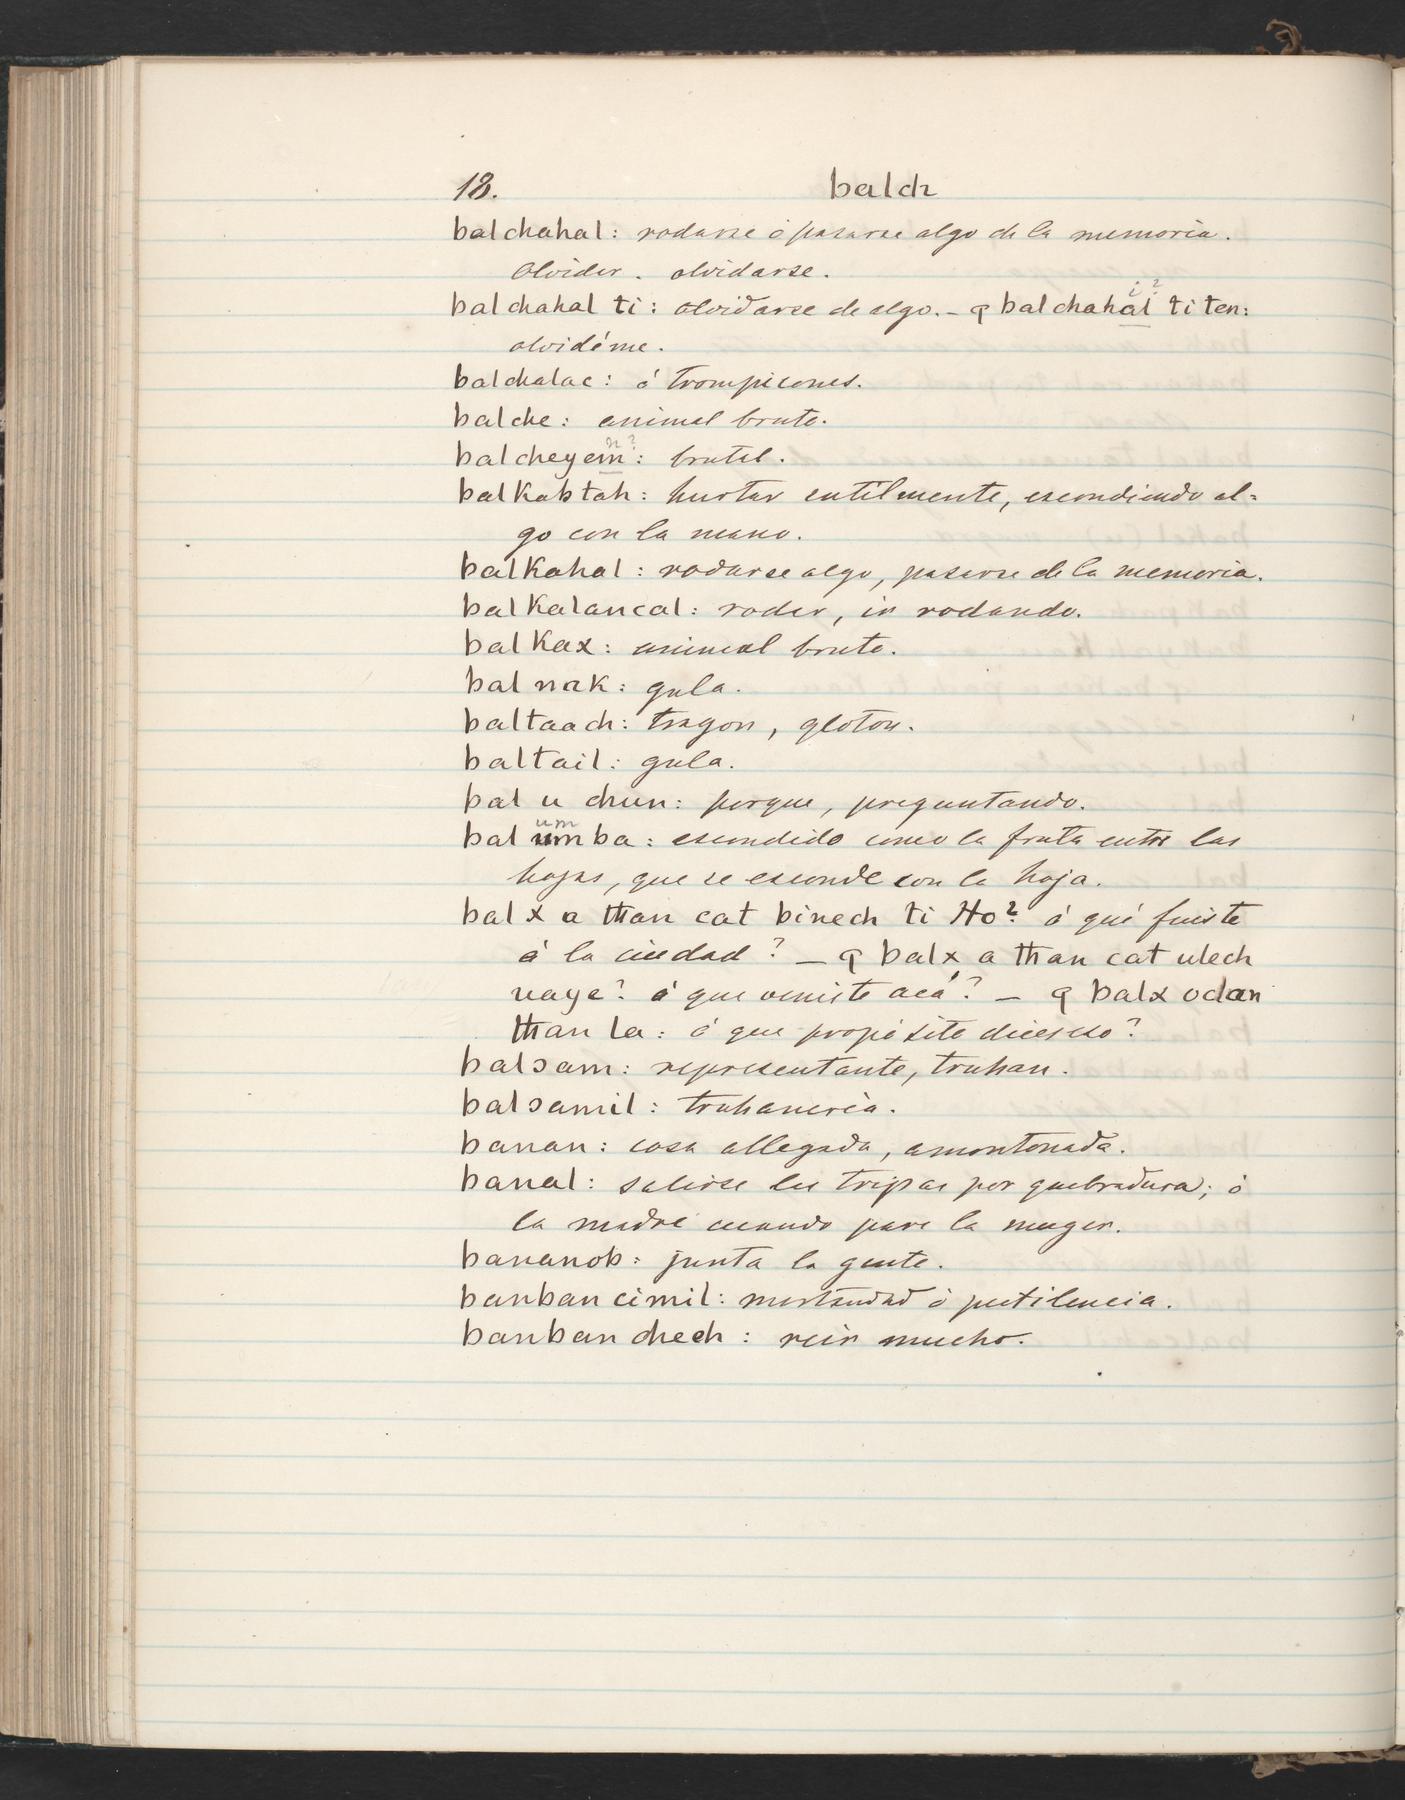 18. balch
balchahal: rodarse ó pasarse algo de la memoria.
olvidar. olvidarse.
balchahal ti: olvidarse de algo. _ ꝗ balchahal ti ten:
i?
olvidéme.
balchalac: á trompicones.
balche: animal bruto.
n?
balcheyem: brutal.
balkabtah: hurtar sutilmente, escondiendo al=
go con la mano.
balkahal: rodarse algo, pasarse de la memoria.
balkalancal: rodar, ir rodando.
bal kax: animal bruto.
bal nak: gula.
baltaach: tragon, gloton.
baltail: gula.
bal u chun: porque, preguntando.
um
bal umba: escondido como la fruta entre las
hojas, que se esconde con la hoja.
balx a than cat binech ti Ho? á qué fuiste
á la ciudad? _ ꝗ balx a than cat ulech
uaye? á que veniste acá? _ ꝗ balx oclan
than la: á que propósito dices eso?
balɔam: representante, truhan.
balɔamil: truhaneria.
banan: cosa allegada, amontonada.
banal: salirse las tripas por quebradura; ó
la madre cuando pare la muger.
bananob: junta la gente.
banban cimil: mortandad ó pestilencia.
banban cheeh: reir mucho.